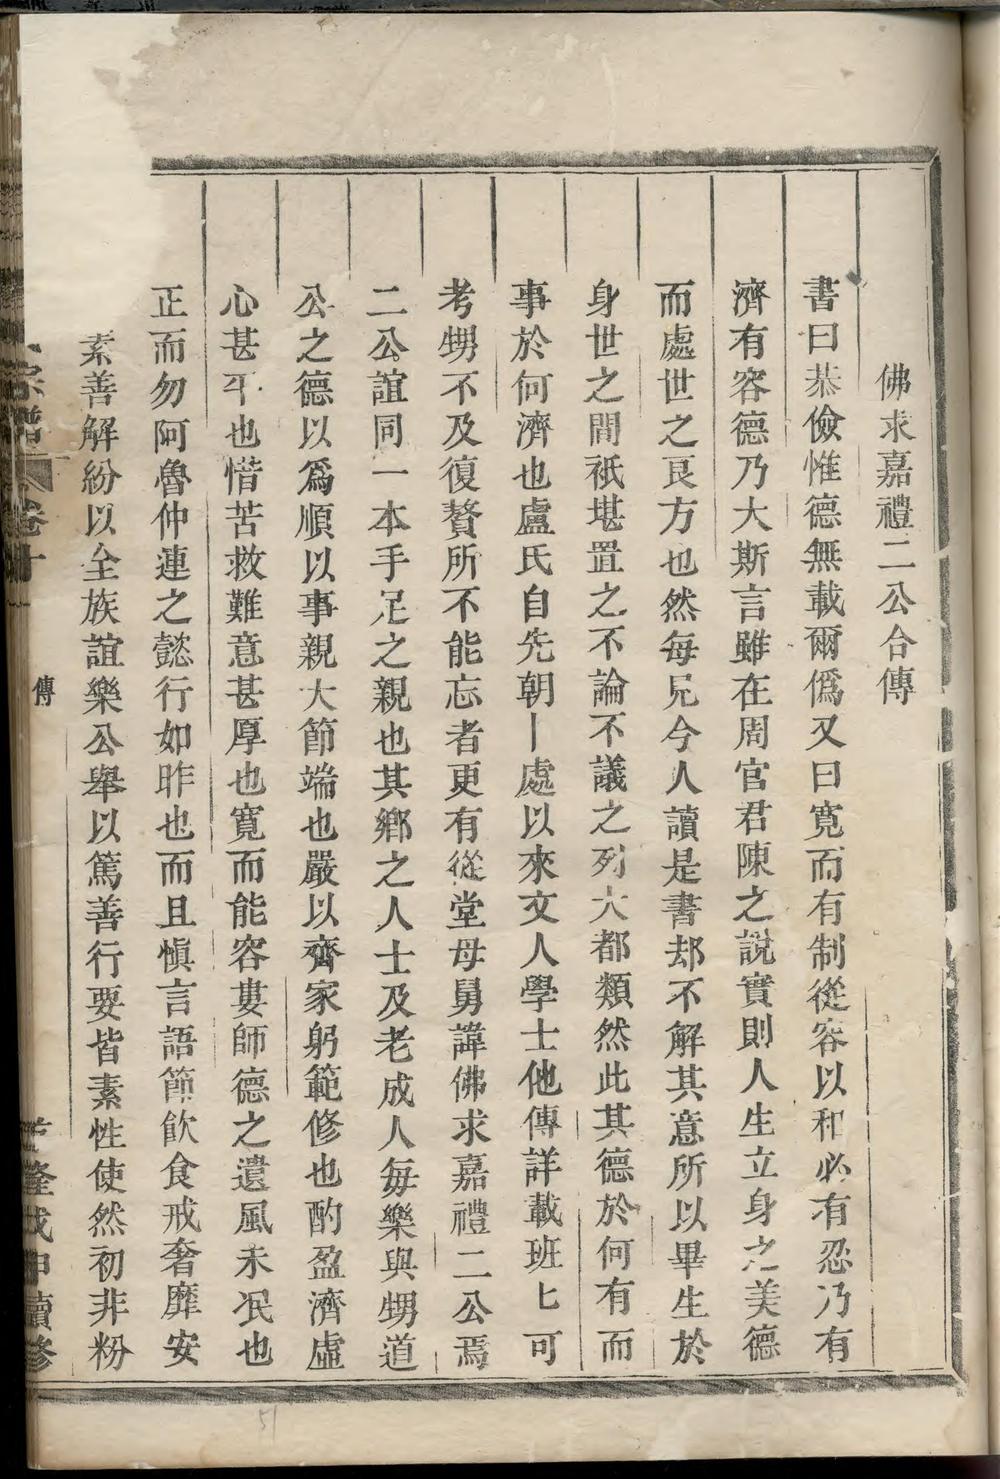 佛求嘉禮二公合傳
書曰恭儉惟德無載爾僞又曰寛而有制從容以和必有忍乃有
濟有容德乃大斯言雖在周官君陳之說實則人生立身之美德
而處世之良方也然每見今人讀是書却不解其意所以畢生於
身世之間祇堪置之不論不議之列大都類然此其德於何有而
事於何濟也盧氏自先朝丨處以來文人學士他傳詳載班匕可
考甥不及復贅所不能忘者更有從堂母舅諱佛求嘉禮二公焉
二公誼同一本手足之親也其鄉之人士及老成人每樂與甥道
公之德以爲順以事親大節端也嚴以齊家躬範修也酌盈濟虛
心甚平也惜苦救難意甚厚也寛而能容婁師德之遺風未泯也
正而勿阿魯仲連之懿行如昨也而且愼言語節飮食戒奢靡安
素善解紛以全族誼樂公舉以篤善行要皆素性使然初非粉
宗譜 卷十 傳 隆戊申續修
51